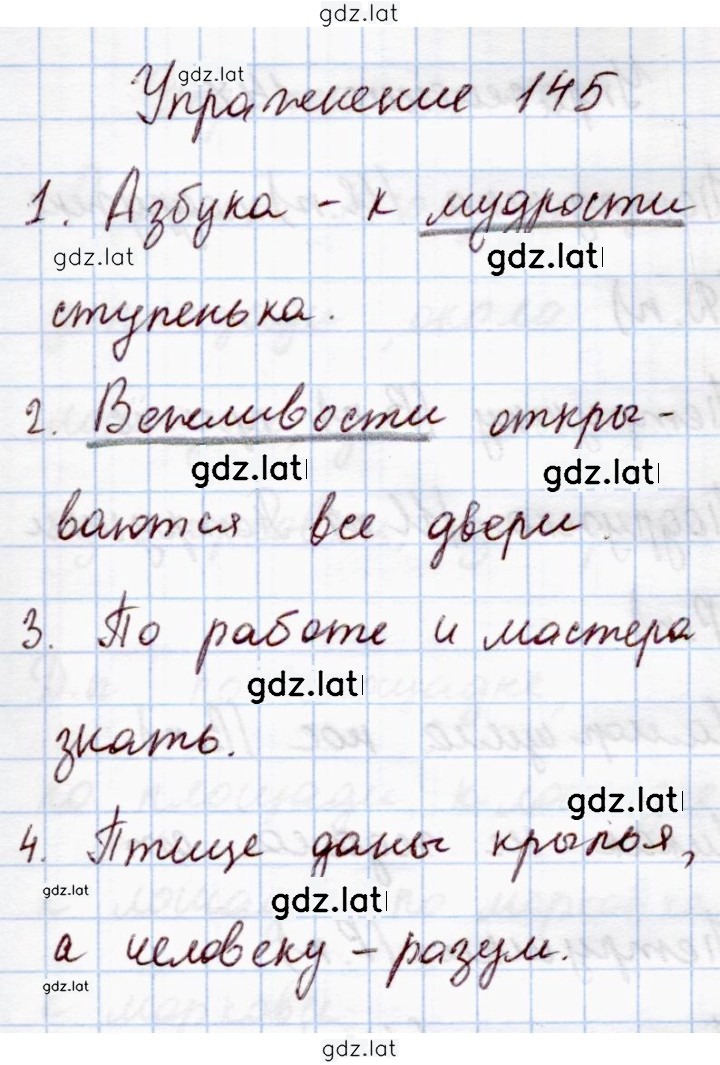 gdz.lat
gdz.lat
Упражнение 145
1. Азбука - к мудрости
gdz.lat
gdz.lat
ступенька.
2. Вежливости откры-
gdz.lat
gdz.lat
ваются все двери.
3. По работе и мастера
gdz.lat
знать.
gdz.lat
4. Птице даны крылья,
gdz.lat
gdz.lat
а человеку - разум.
gdz.lat
gdz.lat